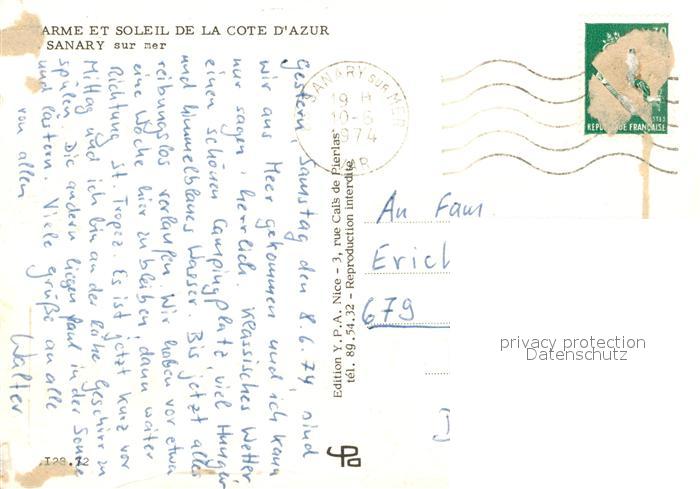 ARME ET SOLEIL DE LA COTE D'AZUR
SANARY sur mer
Gestern, Samstag den 8.6.74, sind
wir ans Meer gekommen und ich kann
nur sagen: herrlich. Klassisches Wetter
einen schönen Campingplatz, viel Hunger
und himmelblaues Wasser. Bis jetzt alles
reibungslos verlaufen. Wir haben vor etwa
eine Woche hier zu bleiben, dann weiter
Richtung St. Tropez. Es ist jetzt kurz vor
Mittag und ich bin an der Reihe Geschirr zu
spülen. Die andern liegen faul in der Sonne
und lästern. Viele Grüße an alle
von allen
Walter
I28.72
Edition Y.P.A. Nice - 3, rue Caïs de Pierlas
tél. 89.54.32 - Reproduction interdite
SANARY SUR MER
19 H
10-6
1974
VAR
70
REPUBLIQUE FRANÇAISE
An Fam
Erich
679
privacy protection
Datenschutz